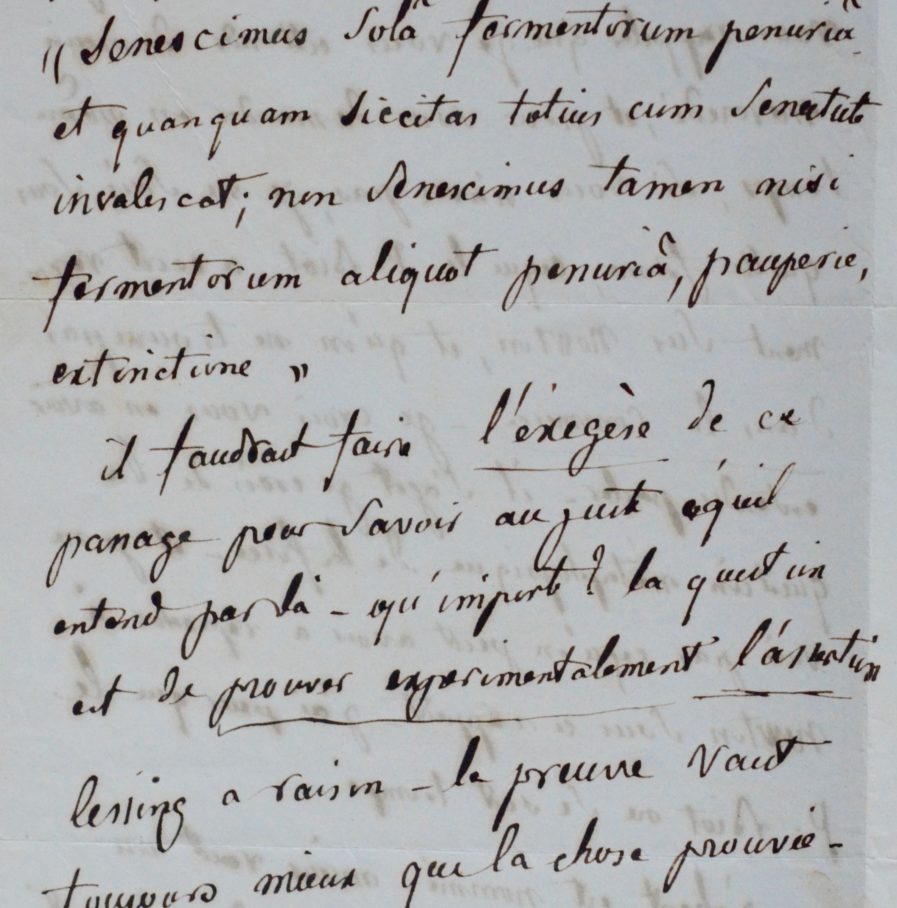 "Senescimus Solâ fermentorum penuriâ
et quanquam siccitas totius cum Senectute
invalescat; non Senescimus tamen nisi
fermentorum aliquot penuriâ, pauperie,
extinctione "
il faudrait faire l'éxegèse de ce
passage pour Savoir au juste qu'il
entend par là - qu'importe? la question
est de prouver experimentalement l'assertion
lessing a raison - la preuve vaut
toujours mieux que la chose prouvée -